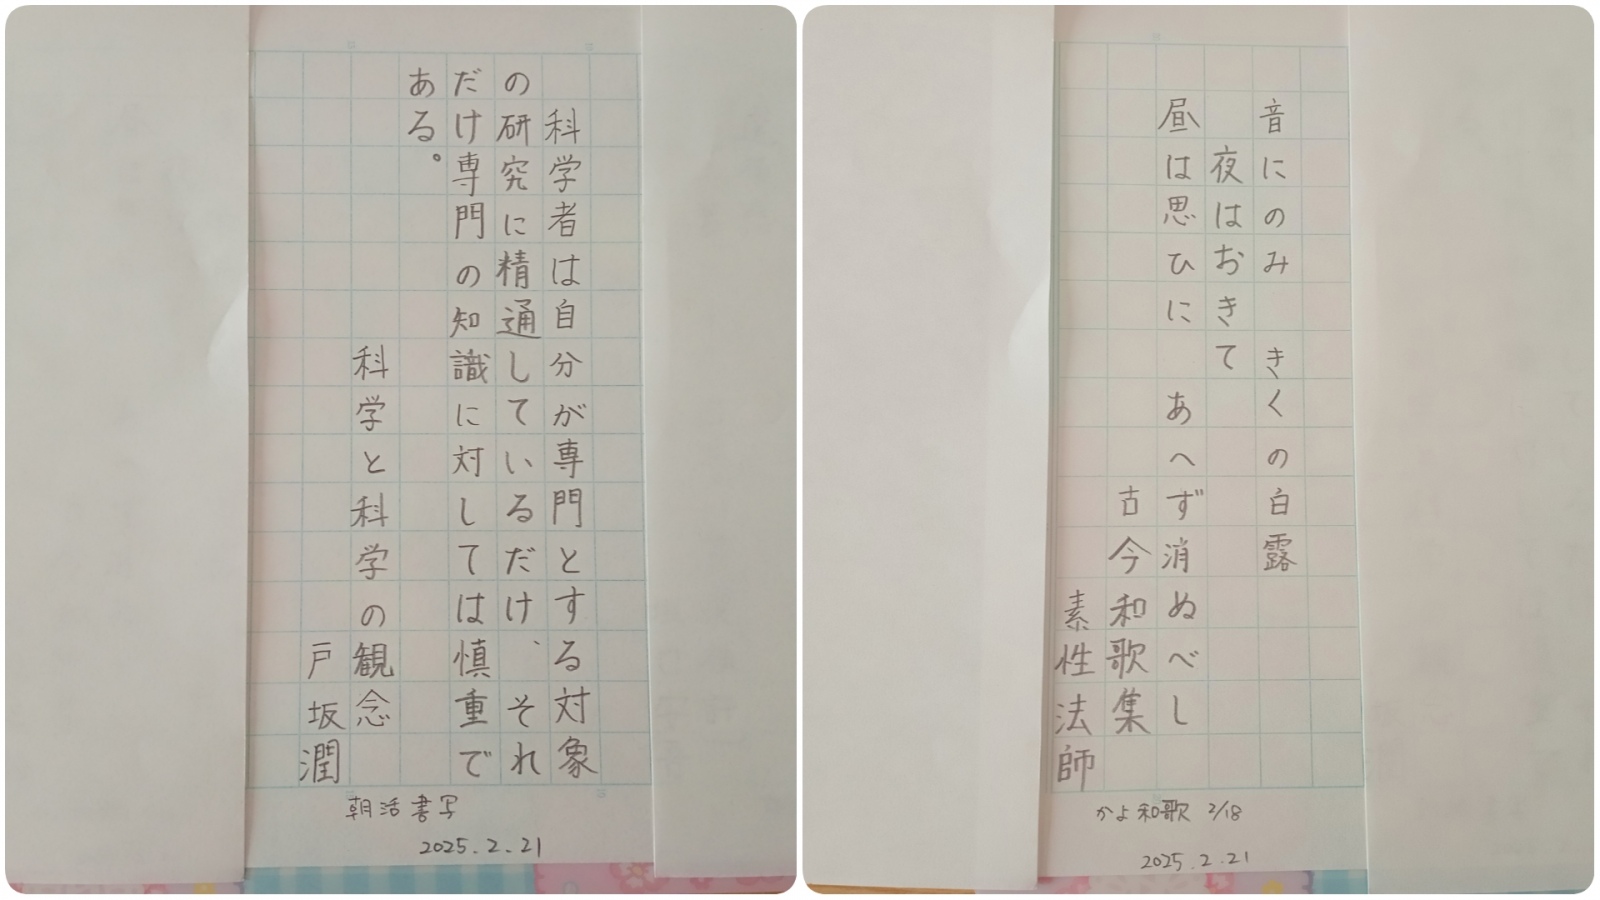 科学者は自分が専門とする対象
の研究に精通しているだけ、それ
だけ専門の知識に対しては慎重で
ある。
科学と科学の観念
戸坂潤
朝活書写
2025.2.21
音にのみ きくの白露
夜はおきて
昼は思ひに あへず消ぬべし
古今和歌集
素性法師
かよ和歌 2/18
2025.2.21